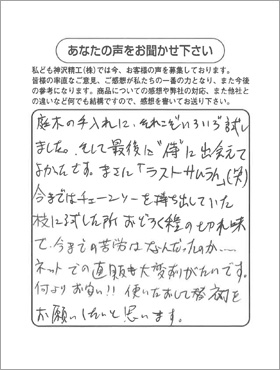 あなたの声をお聞かせ下さい
私ども神沢精工(株)では今、お客様の声を募集しております。
皆様の率直なご意見、ご感想が私たちの一番の力となり、また今後
の参考になります。商品についての感想や弊社の対応、また他社と
の違いなど何でも結構ですので、感想を書いてお送り下さい。
庭木の手入れに、それこそいろいろ試し
ました。そして最後に"侍"に出会えて
よかったです。まさに「ラストサムライ」(笑)
今まではチェーンソーを持ち出していた
枝に試した所おどろく程の切れ味
で、今までの苦労はなんだったのか……
ネットでの直販も大変ありがたいです。
何よりお安い!! 使いたおして
お願いしたいと思います。